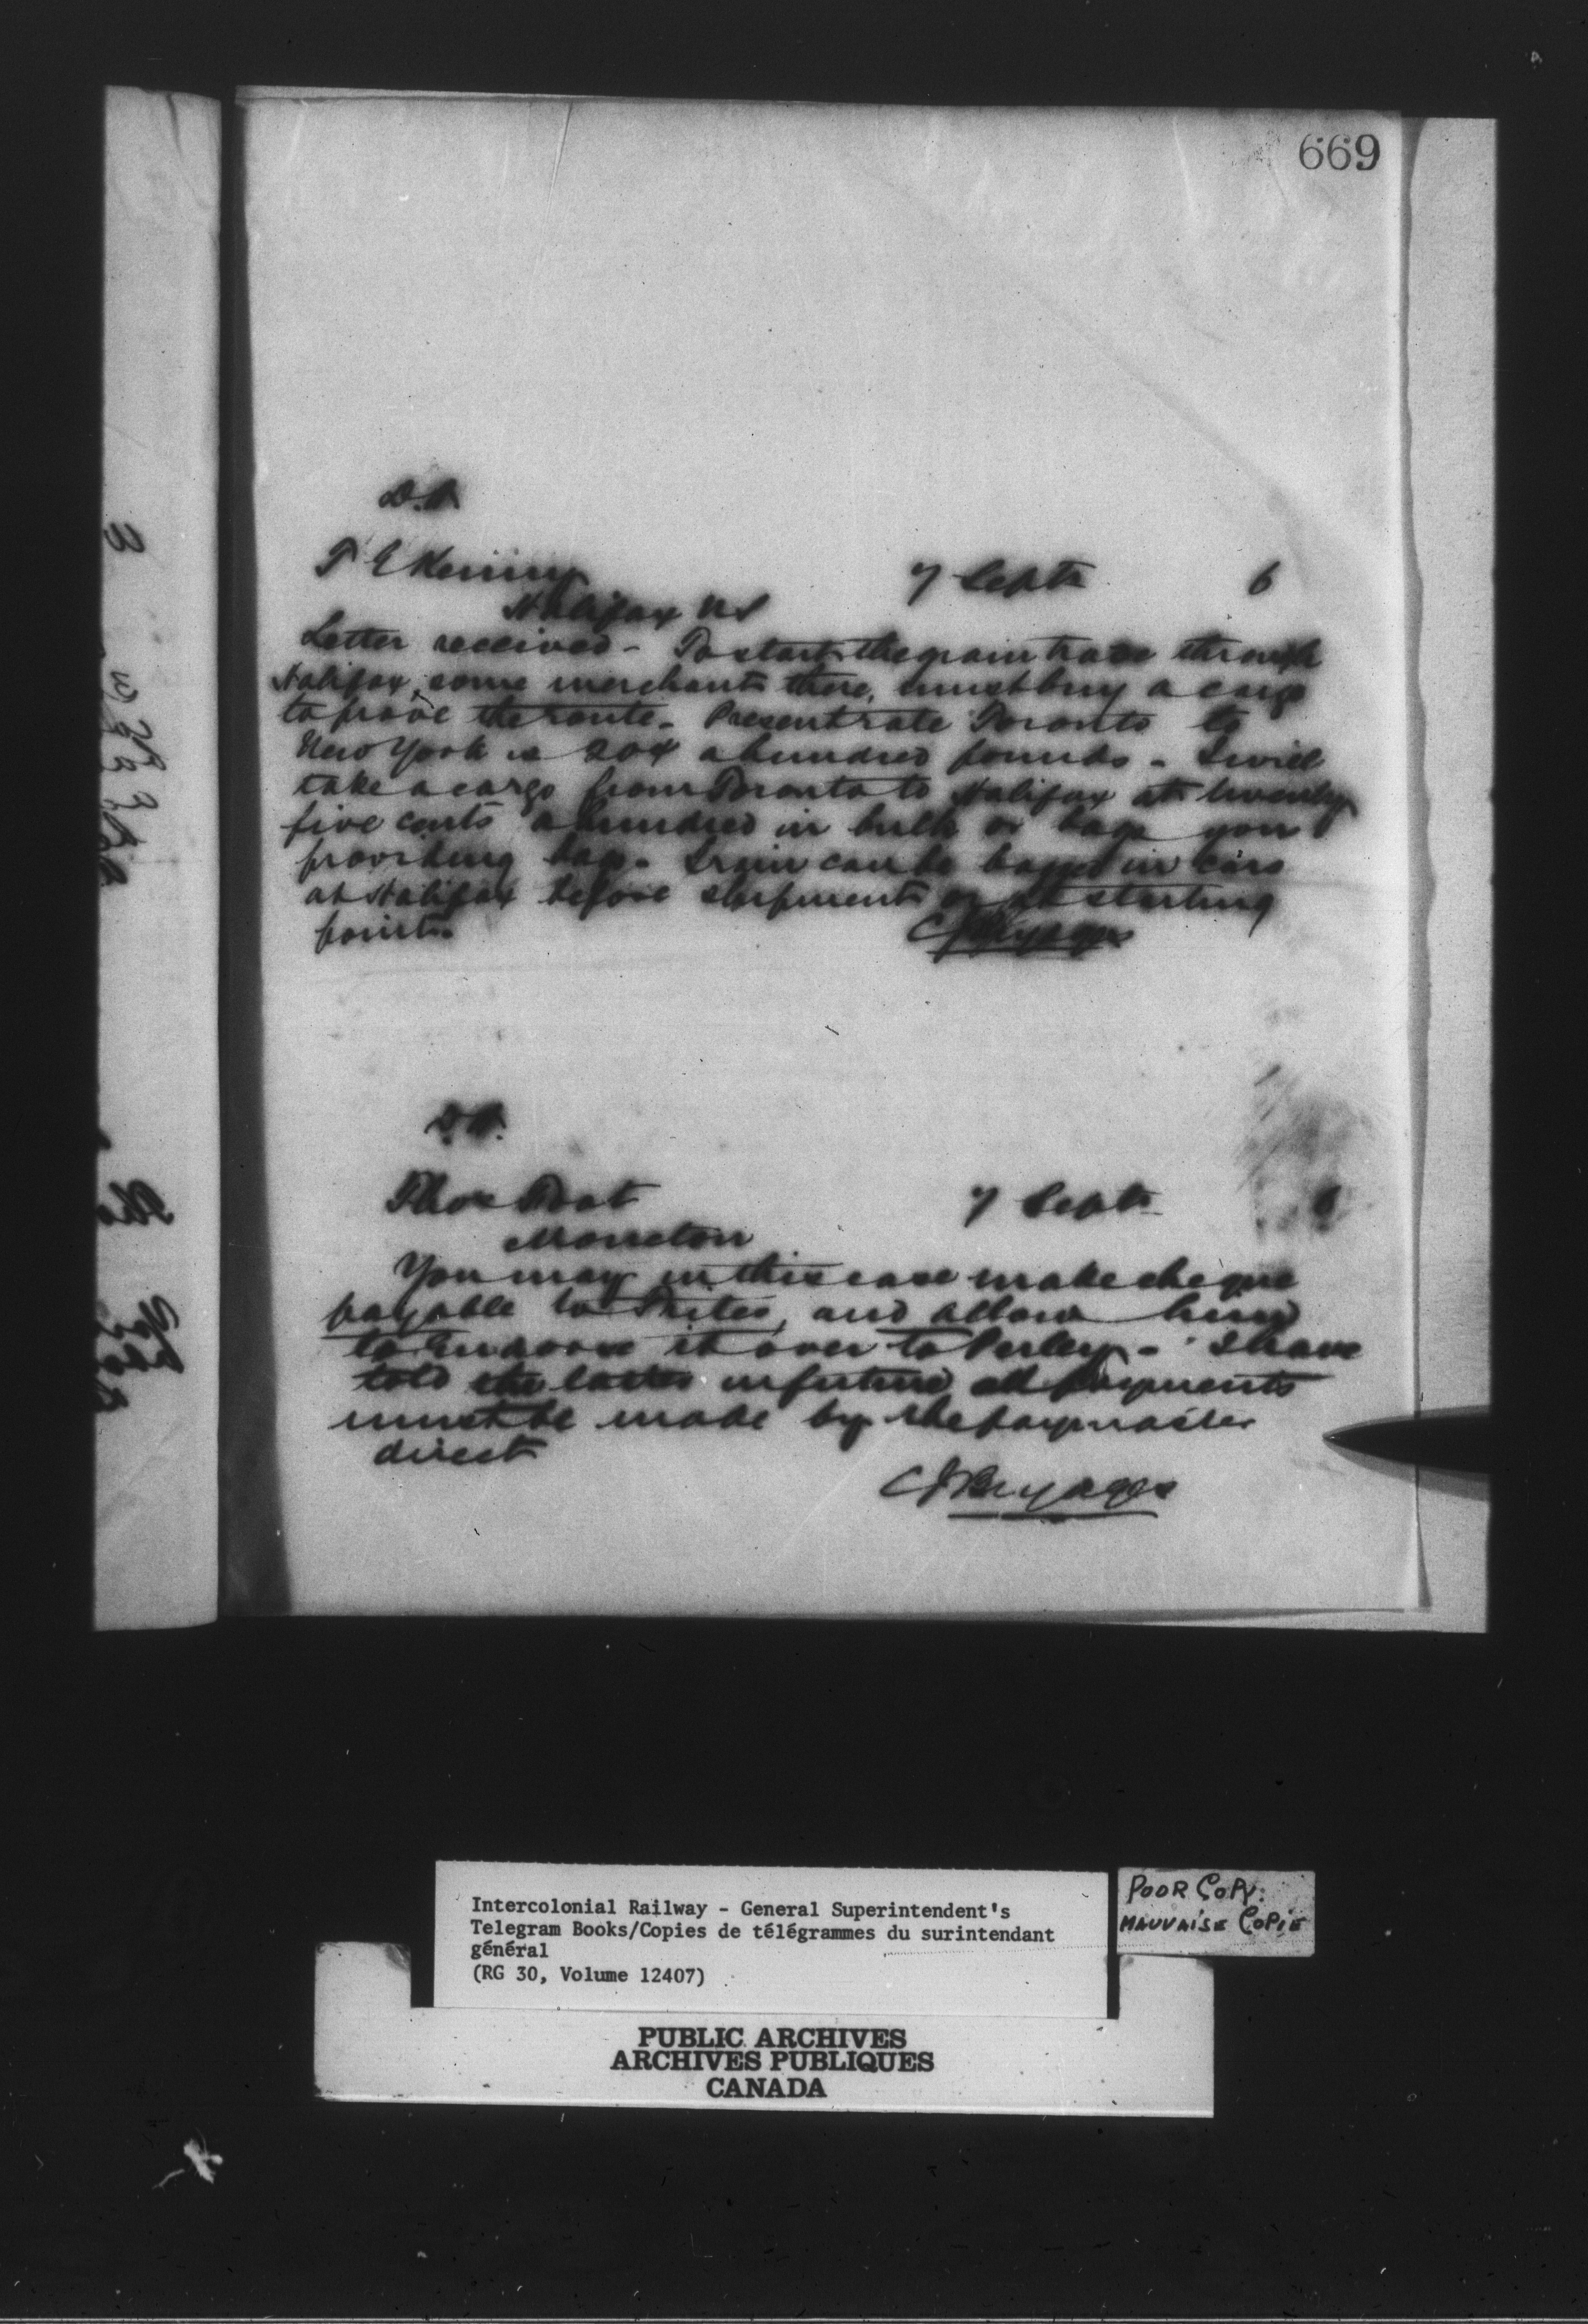 669
D.H.
T E Kenny 7 Septr 6
Halifax NS
Letter received - To start the grain trade through
Halifax, some merchant there, must buy a cargo
to prove the route. Present rate Toronto to
New York is 20¢ a hundred pounds - I will
take a cargo from Toronto to Halifax at twenty
five cents a hundred in bulk or bags you
providing bags. Grain can be bagged in cars
at Halifax before shipment or at starting
point.
CJBrydges
D.H.
Thos Foot 7 Septr
Moncton
You may in this case make cheque
payable to Trites, and allow him
to endorse it over to Perley - I have
told the latter in future all payments
must be made by the paymaster
direct
CJBrydges
Intercolonial Railway - General Superintendent's
Telegram Books/Copies de télégrammes du surintendant
général
(RG 30, Volume 12407)
POOR COPY.
MAUVAISE COPIE
PUBLIC ARCHIVES
ARCHIVES PUBLIQUES
CANADA